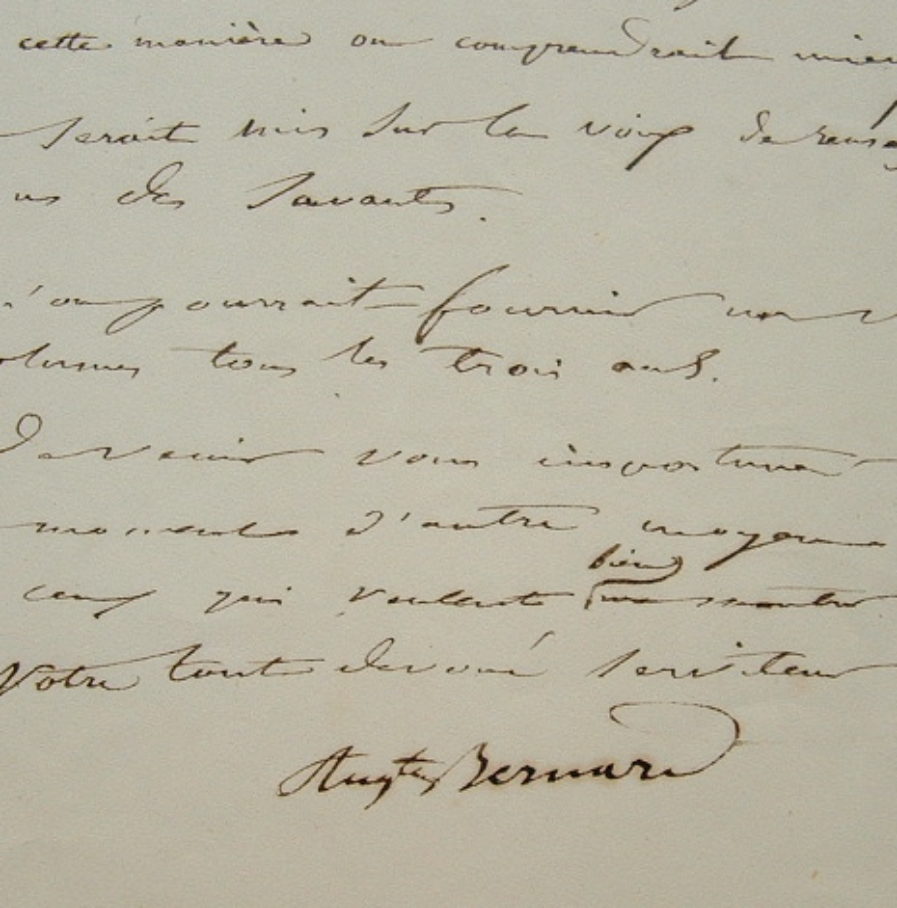 cette manière on comprendrait mieu
serait mis sur la voix de rens
us des savants.
'on pourrait fournir un v
olumes tous les trois ans.
De venir vous importuner
moments d'autre moyen
ceux qui veulent bien
Votre tout dévoué serviteur
Augte Bernard